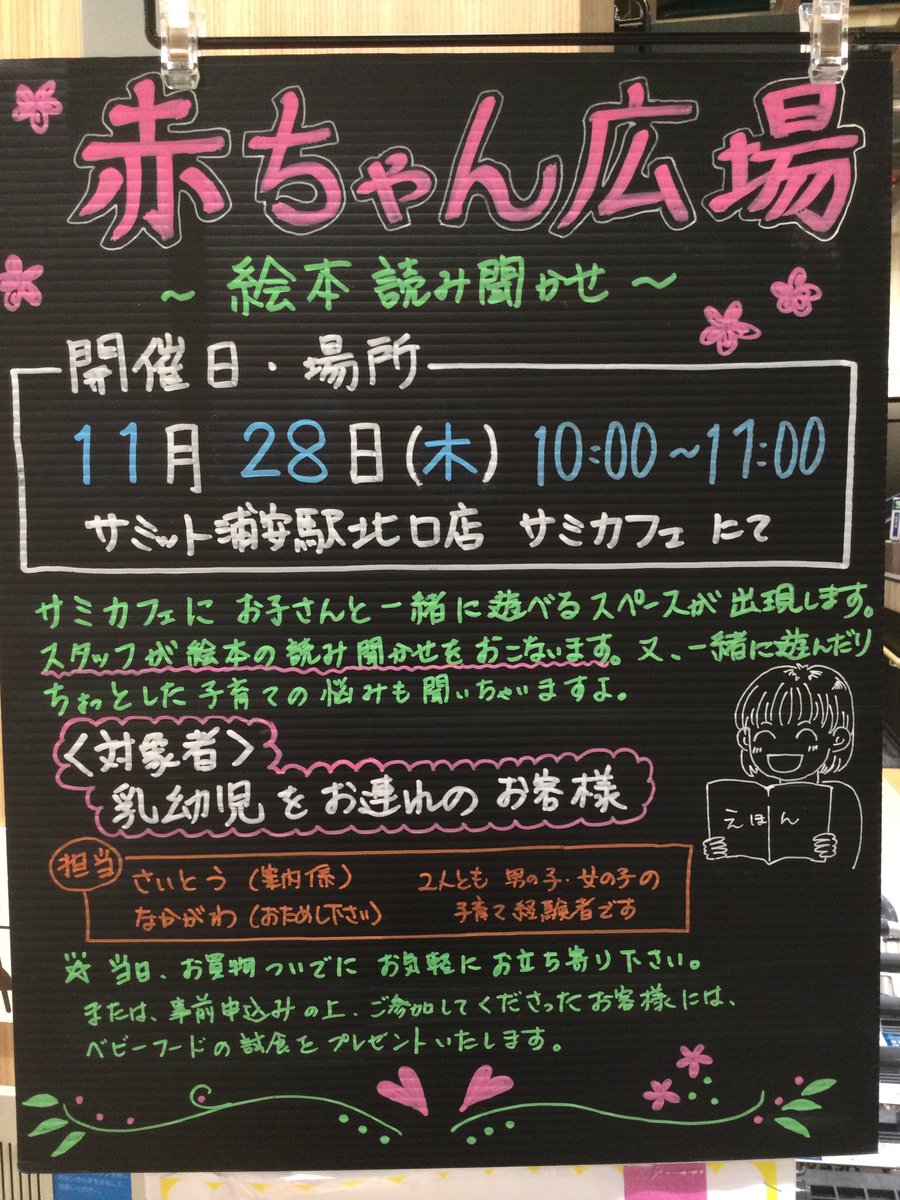 赤ちゃん広場
～ 絵本 読み聞かせ ～
開催日・場所
11月 28日(木) 10:00～11:00
サミット浦安駅北口店 サミカフェ にて
サミカフェに お子さんと一緒に遊べるスペースが出現します。
スタッフが絵本の読み聞かせをおこないます。又、一緒に遊んだり
ちょっとした子育ての悩みも聞いちゃいますよ。
〈対象者〉
乳幼児をお連れのお客様
えほん
担当
さいとう (案内係) 2人とも 男の子・女の子の
なかがわ (おためし下さい) 子育て経験者です
☆ 当日、お買物ついでに お気軽にお立ち寄り下さい。
または、事前申込みの上、ご参加してくださったお客様には、
ベビーフードの試食をプレゼントいたします。